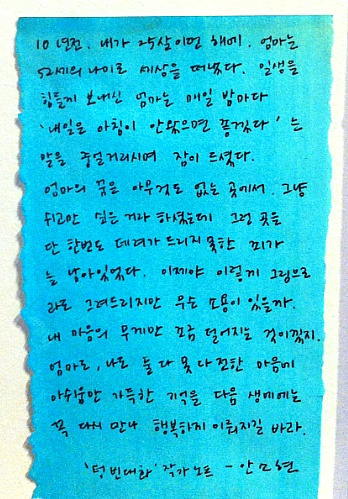 10년전. 내가 25살이던 해에. 엄마는
52세의 나이로 세상을 떠났다. 일생을
힘들게 보내신 엄마는 매일 밤마다
'내일은 아침이 안왔으면 좋겠다' 는
말을 중얼거리시며 잠이 드셨다.
엄마의 꿈은 아무것도 없는 곳에서 그냥
쉬고만 싶은거라 하셨는데 그런 곳을
단 한번도 데려가 드리지 못한 죄가
늘 남아있었다. 이제야 이렇게 그림으로
라도 그려드리지만 무슨 소용이 있을까.
내 마음의 무게만 조금 덜어지는 것이겠지.
엄마도, 나도 둘 다 못 다 전한 마음에
아쉬움만 가득한 기억을 다음 생에에는
꼭 다시 만나 행복하게 이뤄지길 바라.
'텅빈대화' 작가노트 -